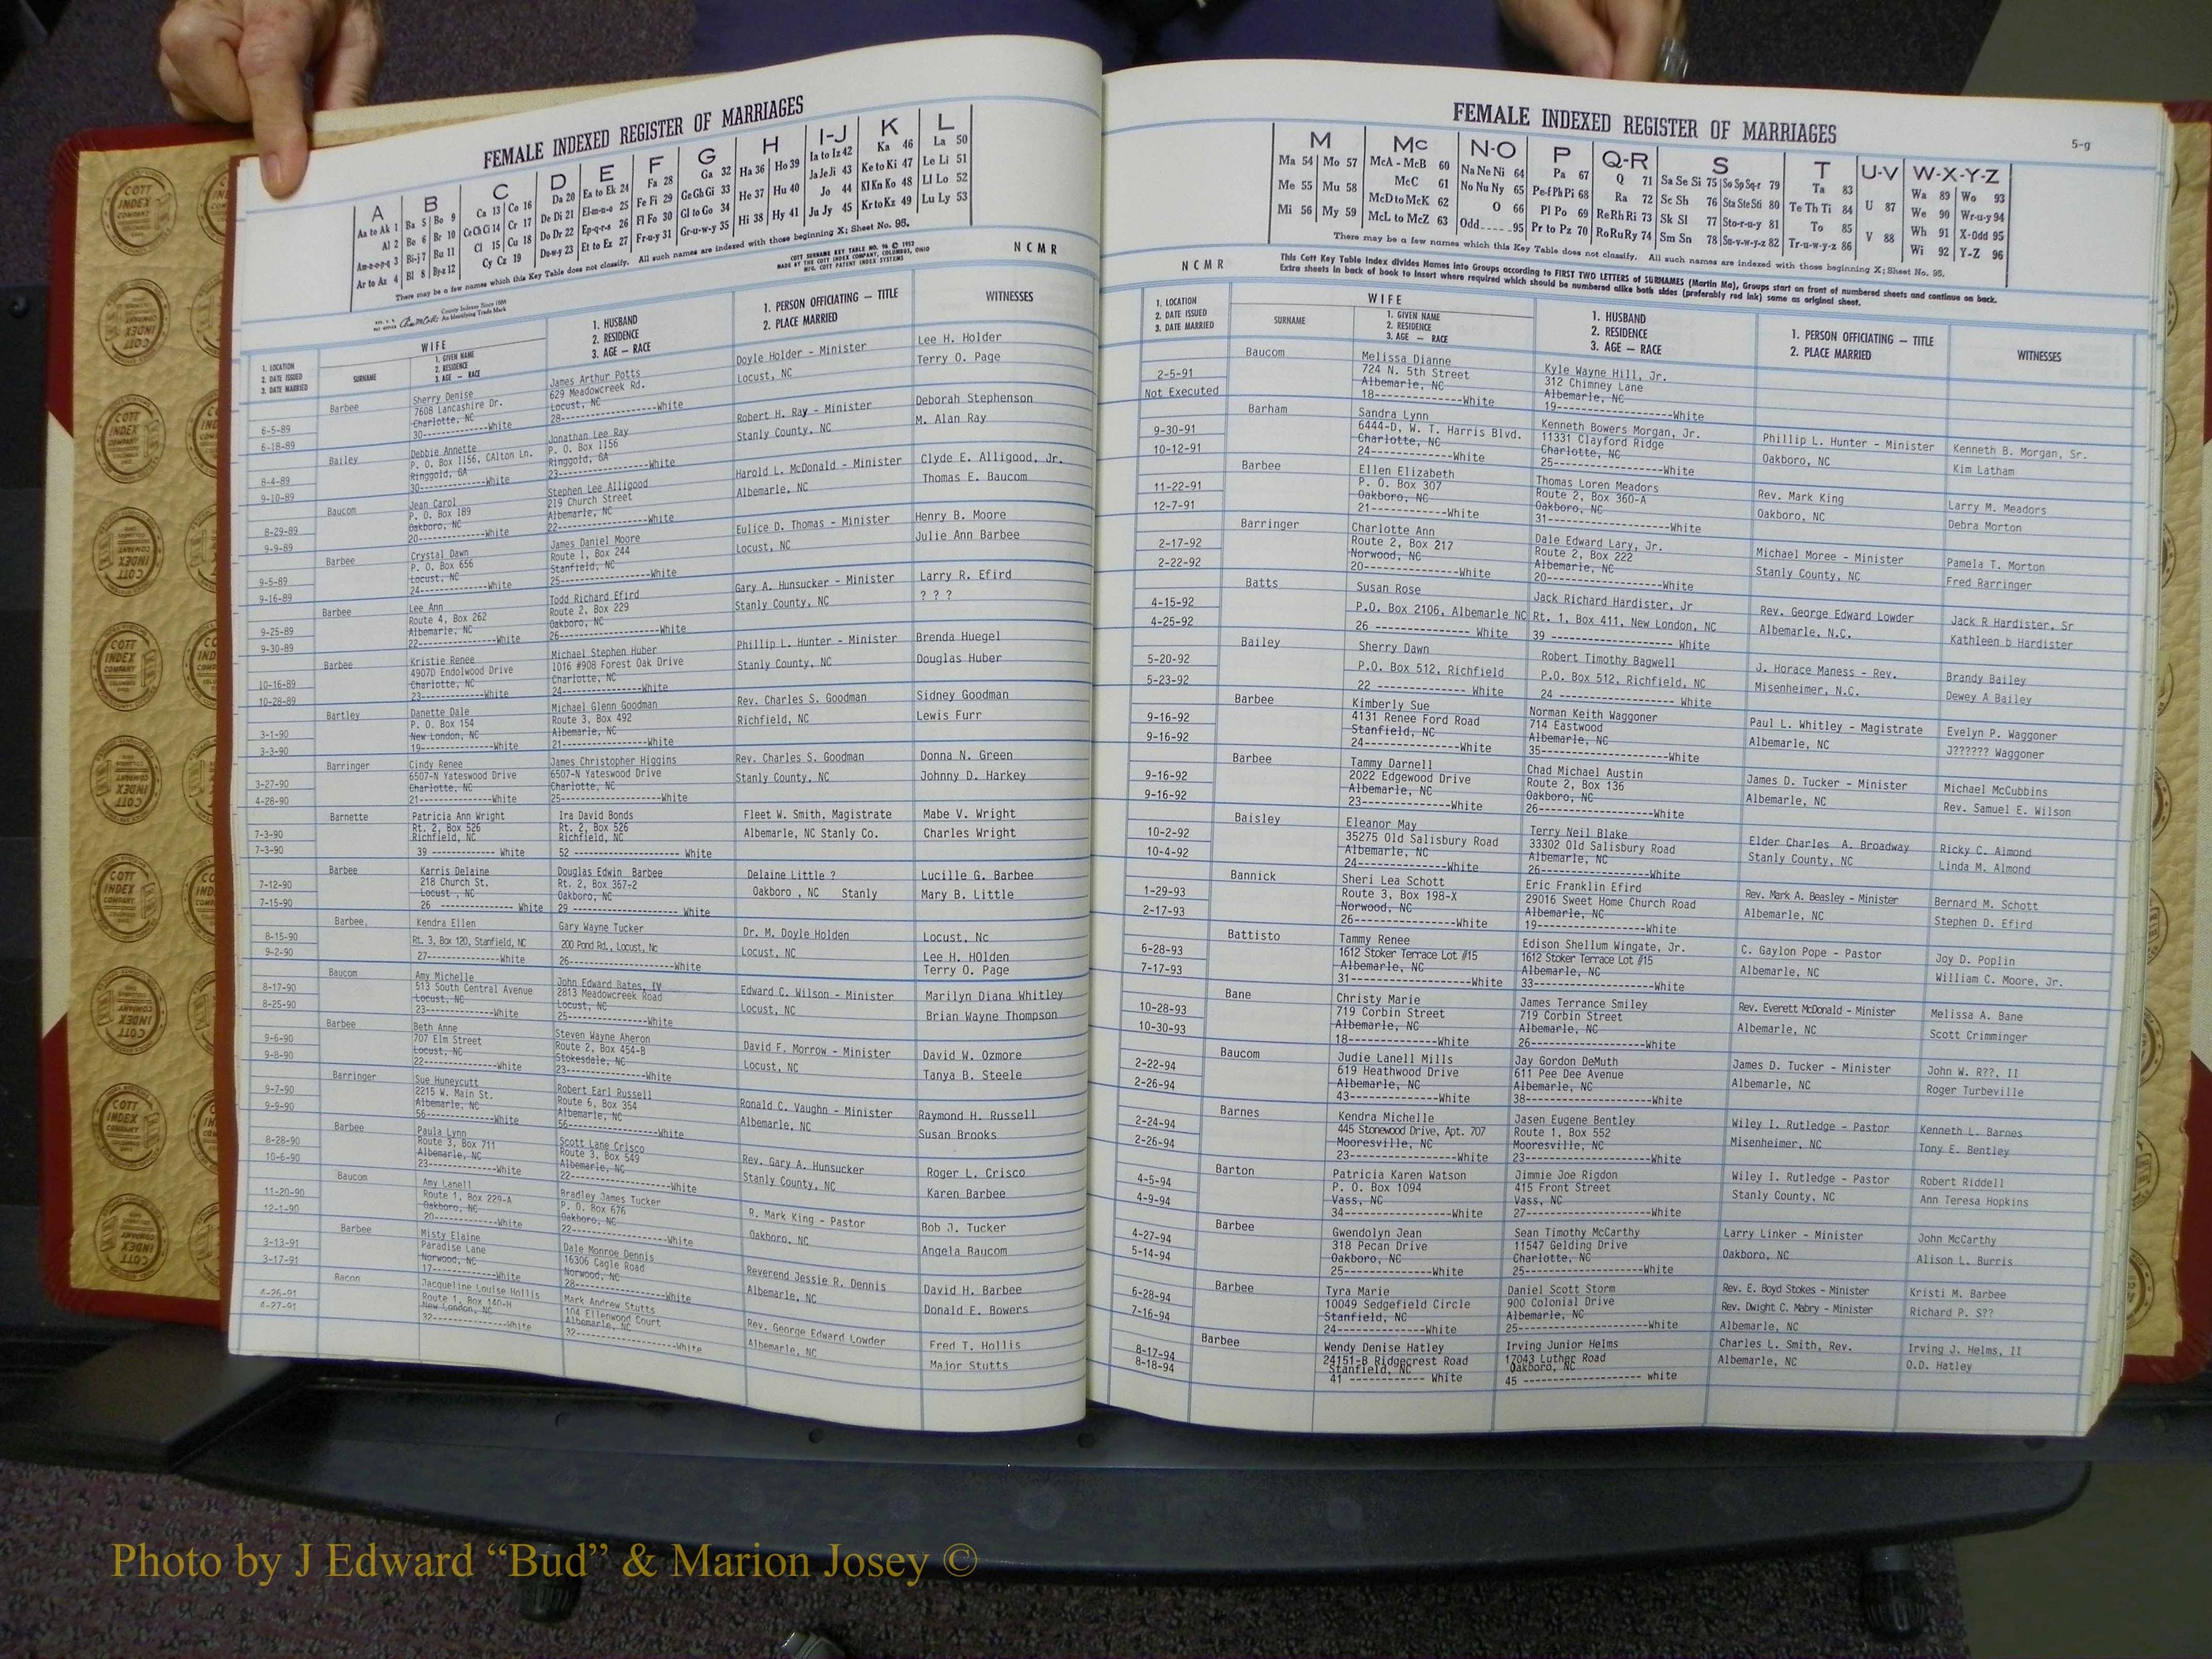 FEMALE INDEXED REGISTER OF MARRIAGES
A B C D E F G H I-J K L
Aa to Ak 1 Ba 5 Bo 9 Ca 13 Co 16 Da 20 Ea to Ek 24 Fa 28 Ga 32 Ha 36 Ho 39 Ia to Iz 42 Ka 46 La 50
Al 2 Be 6 Br 10 Ce Ch Ci 14 Cr 17 De Di 21 El-m-n-o 25 Fe Fi 29 Ge Gh Gi 33 He 37 Hu 40 Ja Je Ji 43 Ke to Ki 47 Le Li 51
Am-n-o-p-q 3 Bi-j-7 Bu 11 Cl 15 Cu 18 Do Dr 22 Ep-q-r-s 26 Fl Fo 30 Gl to Go 34 Hi 38 Hy 41 Jo 44 Kl Kn Ko 48 Ll Lo 52
Ar to Az 4 Bl 8 By-z 12 Cy Cz 19 Du-w-y 23 Et to Ez 27 Fr-u-y 31 Gr-u-w-y 35 Ju Jy 45 Kr to Kz 49 Lu Ly 53
There may be a few names which this Key Table does not classify. All such names are indexed with those beginning X; Sheet No. 95.
County Indexes Since 1888
An Identifying Trade Mark
COTT SURNAME KEY TABLE NO. 96 © 1953
MADE BY THE COTT INDEX COMPANY, COLUMBUS, OHIO
MFG. COTT PATENT INDEX SYSTEMS
NCMR
1. LOCATION
2. DATE ISSUED
3. DATE MARRIED
WIFE
SURNAME
1. GIVEN NAME
2. RESIDENCE
3. AGE — RACE
1. HUSBAND
2. RESIDENCE
3. AGE — RACE
1. PERSON OFFICIATING - TITLE
2. PLACE MARRIED
WITNESSES
6-5-89
6-18-89
Barbee
Sherry Denise
7608 Lancashire Dr.
Charlotte, NC
30--------------White
James Arthur Potts
629 Meadowcreek Rd.
Locust, NC
28--------------White
Doyle Holder - Minister
Locust, NC
Lee H. Holder
Terry O. Page
8-4-89
9-10-89
Bailey
Debbie Annette
P. O. Box 1156, CAlton Ln.
Ringgold, GA
30--------------White
Jonathan Lee Ray
P. O. Box 1156
Ringgold, GA
23--------------White
Robert H. Ray - Minister
Stanly County, NC
Deborah Stephenson
M. Alan Ray
8-29-89
9-9-89
Baucom
Jean Carol
P. O. Box 189
Oakboro, NC
20--------------White
Stephen Lee Alligood
219 Church Street
Albemarle, NC
22--------------White
Harold L. McDonald - Minister
Albemarle, NC
Clyde E. Alligood, Jr.
Thomas E. Baucom
9-5-89
9-16-89
Barbee
Crystal Dawn
P. O. Box 656
Locust, NC
24--------------White
James Daniel Moore
Route 1, Box 244
Stanfield, NC
25--------------White
Eulice D. Thomas - Minister
Locust, NC
Henry B. Moore
Julie Ann Barbee
9-25-89
9-30-89
Barbee
Lee Ann
Route 4, Box 262
Albemarle, NC
22--------------White
Todd Richard Efird
Route 2, Box 229
Oakboro, NC
26--------------White
Gary A. Hunsucker - Minister
Stanly County, NC
Larry R. Efird
? ? ?
10-16-89
10-28-89
Barbee
Kristie Renee
4907D Endolwood Drive
Charlotte, NC
23--------------White
Michael Stephen Huber
1016 #908 Forest Oak Drive
Charlotte, NC
24--------------White
Phillip L. Hunter - Minister
Stanly County, NC
Brenda Huegel
Douglas Huber
3-1-90
3-3-90
Bartley
Danette Dale
P. O. Box 154
New London, NC
19--------------White
Michael Glenn Goodman
Route 3, Box 492
Albemarle, NC
21--------------White
Rev. Charles S. Goodman
Richfield, NC
Sidney Goodman
Lewis Furr
3-27-90
4-28-90
Barringer
Cindy Renee
6507-N Yateswood Drive
Charlotte, NC
21--------------White
James Christopher Higgins
6507-N Yateswood Drive
Charlotte, NC
25--------------White
Rev. Charles S. Goodman
Stanly County, NC
Donna N. Green
Johnny D. Harkey
7-3-90
7-3-90
Barnette
Patricia Ann Wright
Rt. 2, Box 526
Richfield, NC
39 ------------ White
Ira David Bonds
Rt. 2, Box 526
Richfield, NC
52 ------------ White
Fleet W. Smith, Magistrate
Albemarle, NC Stanly Co.
Mabe V. Wright
Charles Wright
7-12-90
7-15-90
Barbee
Karris Delaine
218 Church St.
Locust , NC
26 ------------ White
Douglas Edwin Barbee
Rt. 2, Box 367-2
Oakboro, NC
29 ------------ White
Delaine Little ?
Oakboro , NC Stanly
Lucille G. Barbee
Mary B. Little
8-15-90
9-2-90
Barbee,
Kendra Ellen
Rt. 3, Box 120, Stanfield, NC
27--------------White
Gary Wayne Tucker
200 Pond Rd., Locust, Nc
26--------------White
Dr. M. Doyle Holden
Locust, NC
Locust, Nc
Lee H. HOlden
Terry O. Page
8-17-90
8-25-90
Baucom
Amy Michelle
513 South Central Avenue
Locust, NC
23--------------White
John Edward Bates, IV
2813 Meadowcreek Road
Locust, NC
25--------------White
Edward C. Wilson - Minister
Locust, NC
Marilyn Diana Whitley
Brian Wayne Thompson
9-6-90
9-8-90
Barbee
Beth Anne
707 Elm Street
Locust, NC
22--------------White
Steven Wayne Aheron
Route 2, Box 454-B
Stokesdale, NC
23--------------White
David F. Morrow - Minister
Locust, NC
David W. Ozmore
Tanya B. Steele
9-7-90
9-9-90
Barringer
Sue Huneycutt
2215 W. Main St.
Albemarle, NC
56--------------White
Robert Earl Russell
Route 6, Box 354
Albemarle, NC
56--------------White
Ronald C. Vaughn - Minister
Albemarle, NC
Raymond H. Russell
Susan Brooks
8-28-90
10-6-90
Barbee
Paula Lynn
Route 3, Box 711
Albemarle, NC
23--------------White
Scott Lane Crisco
Route 3, Box 549
Albemarle, NC
22--------------White
Rev. Gary A. Hunsucker
Stanly County, NC
Roger L. Crisco
Karen Barbee
11-20-90
12-1-90
Baucom
Amy Lanell
Route 1, Box 229-A
Oakboro, NC
20--------------White
Bradley James Tucker
P. O. Box 676
Oakboro, NC
22--------------White
R. Mark King - Pastor
Oakboro, NC
Bob J. Tucker
Angela Baucom
3-13-91
3-17-91
Barbee
Misty Elaine
Paradise Lane
Norwood, NC
17--------------White
Dale Monroe Dennis
16306 Cagle Road
Norwood, NC
28--------------White
Reverend Jessie R. Dennis
Albemarle, NC
David H. Barbee
Donald E. Bowers
4-26-91
4-27-91
Bacon
Jacqueline Louise Hollis
Route 1, Box 140-H
New London, NC
32--------------White
Mark Andrew Stutts
104 Ellenwood Court
Albemarle, NC
32--------------White
Rev. George Edward Lowder
Albemarle, NC
Fred T. Hollis
Major Stutts
FEMALE INDEXED REGISTER OF MARRIAGES
5-g
M Mc N-O P Q-R S T U-V W-X-Y-Z
Ma 54 Mo 57 McA - McB 60 Na Ne Ni 64 Pa 67 Q 71 Sa Se Si 75 So Sp Sq-r 79 Ta 83 U 87 Wa 89 Wo 93
Me 55 Mu 58 McC 61 No Nu Ny 65 Pe-f Ph Pi 68 Ra 72 Sc Sh 76 Sta Ste Sti 80 Te Th Ti 84 V 88 We 90 Wr-u-y 94
Mi 56 My 59 McD to McK 62 O 66 Pl Po 69 Re Rh Ri 73 Sk Sl 77 Sto-r-u-y 81 To 85 Wh 91 X-Odd 95
McL to McZ 63 Odd-----95 Pr to Pz 70 Ro Ru Ry 74 Sm Sn 78 Su-v-w-y-z 82 Tr-u-w-y-z 86 Wi 92 Y-Z 96
There may be a few names which this Key Table does not classify. All such names are indexed with those beginning X; Sheet No. 95.
NCMR
This Cott Key Table Index divides Names into Groups according to FIRST TWO LETTERS of SURNAMES (Martin Ma), Groups start on front of numbered sheets and continue on back.
Extra sheets in back of book to insert where required which should be numbered alike both sides (preferably red ink) same as original sheet.
1. LOCATION
2. DATE ISSUED
3. DATE MARRIED
WIFE
SURNAME
1. GIVEN NAME
2. RESIDENCE
3. AGE — RACE
1. HUSBAND
2. RESIDENCE
3. AGE — RACE
1. PERSON OFFICIATING - TITLE
2. PLACE MARRIED
WITNESSES
2-5-91
Not Executed
Baucom
Melissa Dianne
724 N. 5th Street
Albemarle, NC
18--------------White
Kyle Wayne Hill, Jr.
312 Chimney Lane
Albemarle, NC
19--------------White
9-30-91
10-12-91
Barham
Sandra Lynn
6444-D, W. T. Harris Blvd.
Charlotte, NC
24--------------White
Kenneth Bowers Morgan, Jr.
11331 Clayford Ridge
Charlotte, NC
25--------------White
Phillip L. Hunter - Minister
Oakboro, NC
Kenneth B. Morgan, Sr.
Kim Latham
11-22-91
12-7-91
Barbee
Ellen Elizabeth
P. O. Box 307
Oakboro, NC
21--------------White
Thomas Loren Meadors
Route 2, Box 360-A
Oakboro, NC
31--------------White
Rev. Mark King
Oakboro, NC
Larry M. Meadors
Debra Morton
2-17-92
2-22-92
Barringer
Charlotte Ann
Route 2, Box 217
Norwood, NC
20--------------White
Dale Edward Lary, Jr.
Route 2, Box 222
Albemarle, NC
20--------------White
Michael Moree - Minister
Stanly County, NC
Pamela T. Morton
Fred Rarringer
4-15-92
4-25-92
Batts
Susan Rose
P.O. Box 2106, Albemarle NC
26 ------------ White
Jack Richard Hardister, Jr
Rt. 1, Box 411, New London, NC
39 ------------ White
Rev. George Edward Lowder
Albemarle, N.C.
Jack R Hardister, Sr
Kathleen b Hardister
5-20-92
5-23-92
Bailey
Sherry Dawn
P.O. Box 512, Richfield
22 ------------ White
Robert Timothy Bagwell
P.O. Box 512, Richfield, NC
24 ------------ White
J. Horace Maness - Rev.
Misenheimer, N.C.
Brandy Bailey
Dewey A Bailey
9-16-92
9-16-92
Barbee
Kimberly Sue
4131 Renee Ford Road
Stanfield, NC
24--------------White
Norman Keith Waggoner
714 Eastwood
Albemarle, NC
35--------------White
Paul L. Whitley - Magistrate
Albemarle, NC
Evelyn P. Waggoner
J?????? Waggoner
9-16-92
9-16-92
Barbee
Tammy Darnell
2022 Edgewood Drive
Albemarle, NC
23--------------White
Chad Michael Austin
Route 2, Box 136
Oakboro, NC
26--------------White
James D. Tucker - Minister
Albemarle, NC
Michael McCubbins
Rev. Samuel E. Wilson
10-2-92
10-4-92
Baisley
Eleanor May
35275 Old Salisbury Road
Albemarle, NC
24--------------White
Terry Neil Blake
33302 Old Salisbury Road
Albemarle, NC
26--------------White
Elder Charles A. Broadway
Stanly County, NC
Ricky C. Almond
Linda M. Almond
1-29-93
2-17-93
Bannick
Sheri Lea Schott
Route 3, Box 198-X
Norwood, NC
26--------------White
Eric Franklin Efird
29016 Sweet Home Church Road
Albemarle, NC
19--------------White
Rev. Mark A. Beasley - Minister
Albemarle, NC
Bernard M. Schott
Stephen D. Efird
6-28-93
7-17-93
Battisto
Tammy Renee
1612 Stoker Terrace Lot #15
Albemarle, NC
31--------------White
Edison Shellum Wingate, Jr.
1612 Stoker Terrace Lot #15
Albemarle, NC
33--------------White
C. Gaylon Pope - Pastor
Albemarle, NC
Joy D. Poplin
William C. Moore, Jr.
10-28-93
10-30-93
Bane
Christy Marie
719 Corbin Street
Albemarle, NC
18--------------White
James Terrance Smiley
719 Corbin Street
Albemarle, NC
26--------------White
Rev. Everett McDonald - Minister
Albemarle, NC
Melissa A. Bane
Scott Crimminger
2-22-94
2-26-94
Baucom
Judie Lanell Mills
619 Heathwood Drive
Albemarle, NC
43--------------White
Jay Gordon DeMuth
611 Pee Dee Avenue
Albemarle, NC
38--------------White
James D. Tucker - Minister
Albemarle, NC
John W. R??, II
Roger Turbeville
2-24-94
2-26-94
Barnes
Kendra Michelle
445 Stonewood Drive, Apt. 707
Mooresville, NC
23--------------White
Jasen Eugene Bentley
Route 1, Box 552
Mooresville, NC
23--------------White
Wiley I. Rutledge - Pastor
Misenheimer, NC
Kenneth L. Barnes
Tony E. Bentley
4-5-94
4-9-94
Barton
Patricia Karen Watson
P. O. Box 1094
Vass, NC
34--------------White
Jimmie Joe Rigdon
415 Front Street
Vass, NC
27--------------White
Wiley I. Rutledge - Pastor
Stanly County, NC
Robert Riddell
Ann Teresa Hopkins
4-27-94
5-14-94
Barbee
Gwendolyn Jean
318 Pecan Drive
Oakboro, NC
25--------------White
Sean Timothy McCarthy
11547 Gelding Drive
Charlotte, NC
25--------------White
Larry Linker - Minister
Oakboro, NC
John McCarthy
Alison L. Burris
6-28-94
7-16-94
Barbee
Tyra Marie
10049 Sedgefield Circle
Stanfield, NC
24--------------White
Daniel Scott Storm
900 Colonial Drive
Albemarle, NC
25--------------White
Rev. E. Boyd Stokes - Minister
Rev. Dwight C. Mabry - Minister
Albemarle, NC
Kristi M. Barbee
Richard P. S??
8-17-94
8-18-94
Barbee
Wendy Denise Hatley
24151-B Ridgecrest Road
Stanfield, NC
41 ------------ White
Irving Junior Helms
17043 Luther Road
Oakboro, NC
45 ------------ white
Charles L. Smith, Rev.
Albemarle, NC
Irving J. Helms, II
O.D. Hatley
Photo by J Edward “Bud” & Marion Josey ©